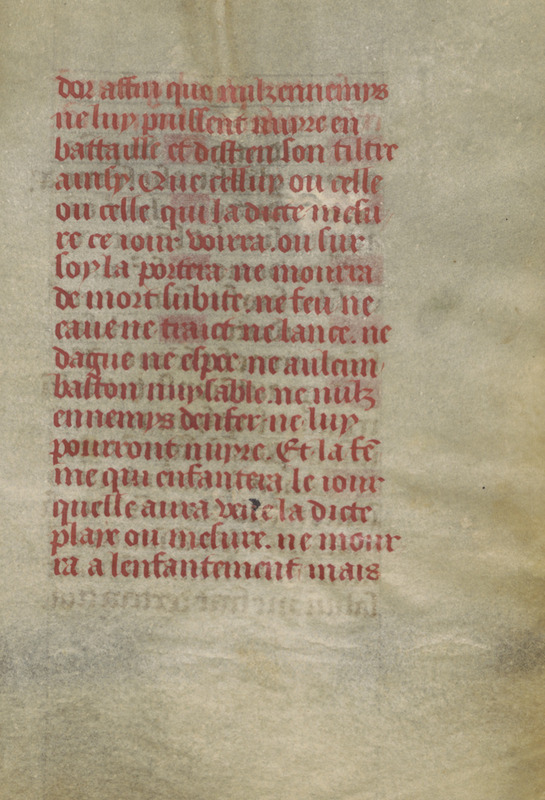 dor affin que nulz ennemys
ne luy puissent nuyre en
battaille et distien son tiltre
ainsy. Que cellui ou celle
ou celle qui la dicte mesu
re ce iour voirra. ou sur
soy la portera ne mourra
de mort subite. ne feu ne
eaue ne traict ne lance. ne
dague ne espee. ne aulcun
baston nuysable. ne nulz
ennemys denfer ne luy
pourront nuyre. Et la fē
me qui enfantera le iour
quelle aura veue la dicte
playe ou mesure. ne mour
ra a lenfantement mais